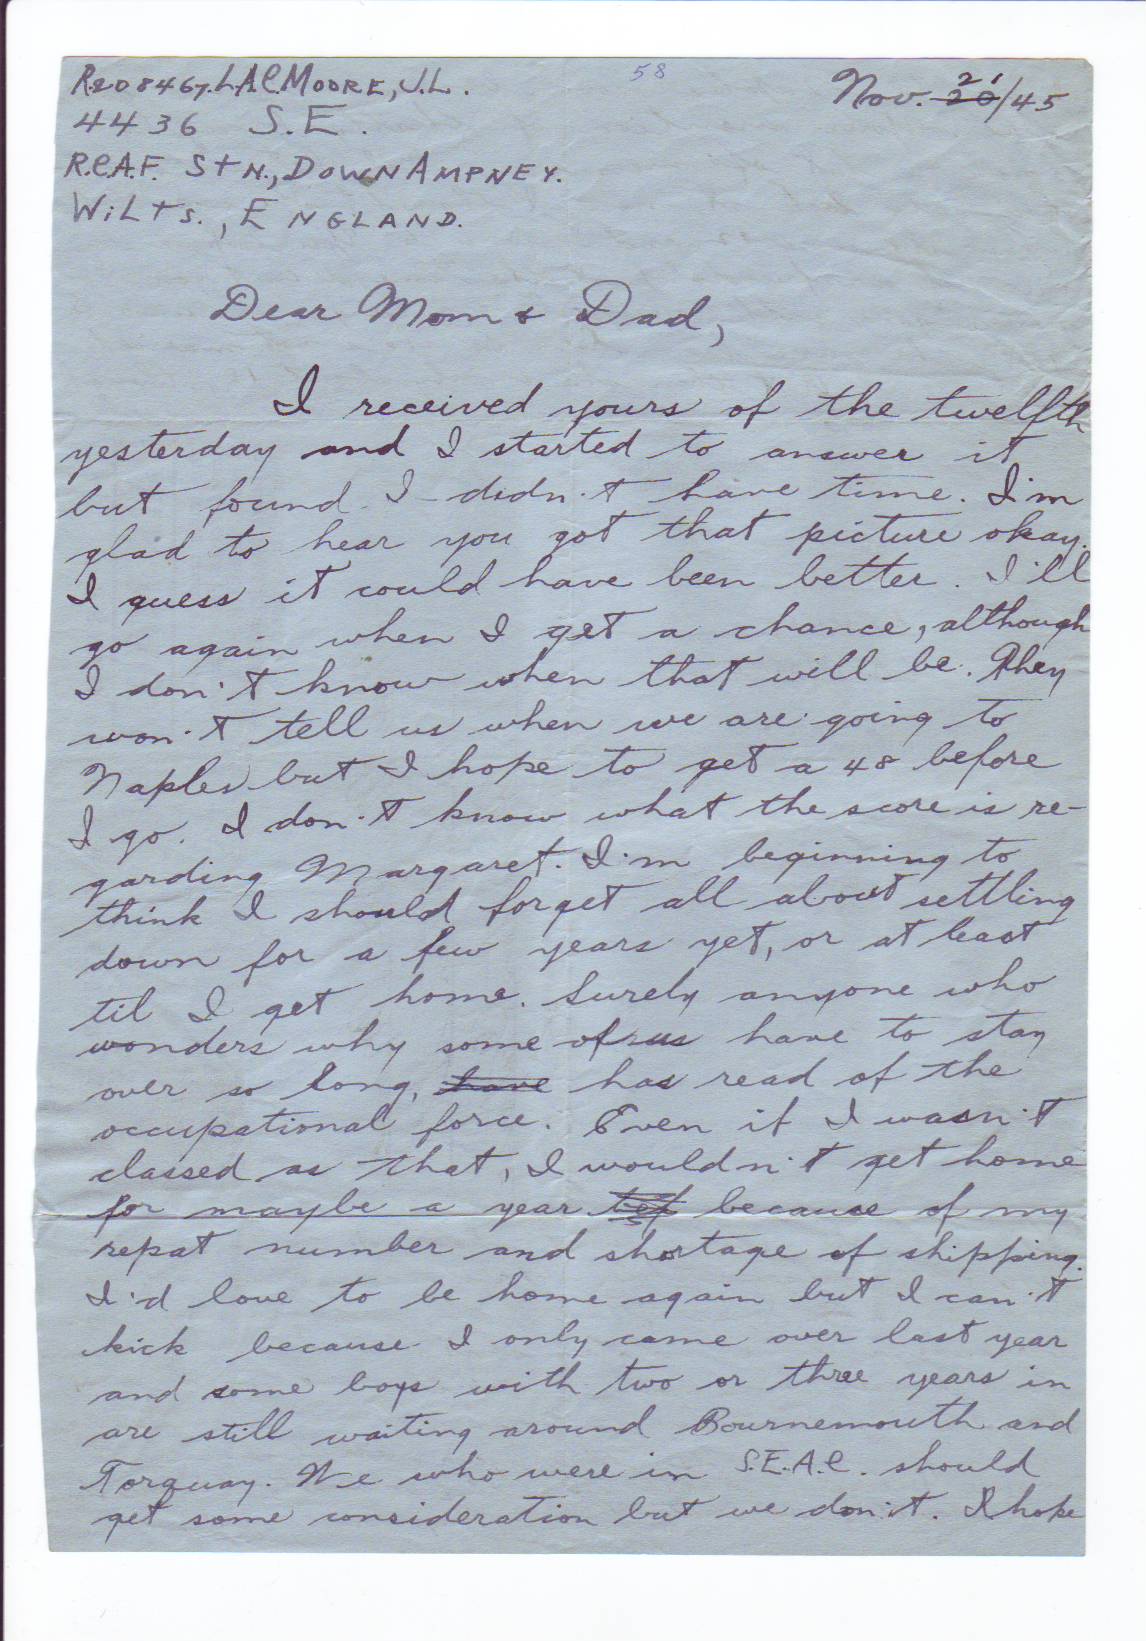 58
R208467. LAC. MOORE, J.L.
Nov. 20 21/45
4436 S.E.
R.C.A.F. STN., DOWN AMPNEY.
WILTS., ENGLAND.
Dear Mom & Dad,
I received yours of the twelfth
yesterday and I started to answer it
but found I didn't have time. I'm
glad to hear you got that picture okay.
I guess it could have been better. I'll
go again when I get a chance, although
I don't know when that will be. They
won't tell us when we are going to
Naples but I hope to get a 48 before
I go. I don't know what the score is re-
garding Margaret. I'm beginning to
think I should forget all about settling
down for a few years yet, or at least
til I get home. Surely anyone who
wonders why some of us have to stay
over so long, have has read of the
occupational force. Even if I wasn't
classed as that, I wouldn't get home
for maybe a year bef because of my
repat number and shortage of shipping.
I'd love to be home again but I can't
kick because I only came over last year
and some boys with two or three years in
are still waiting around Bournemouth and
Torquay. We who were in S.E.A.C. should
get some consideration but we don't. I hope